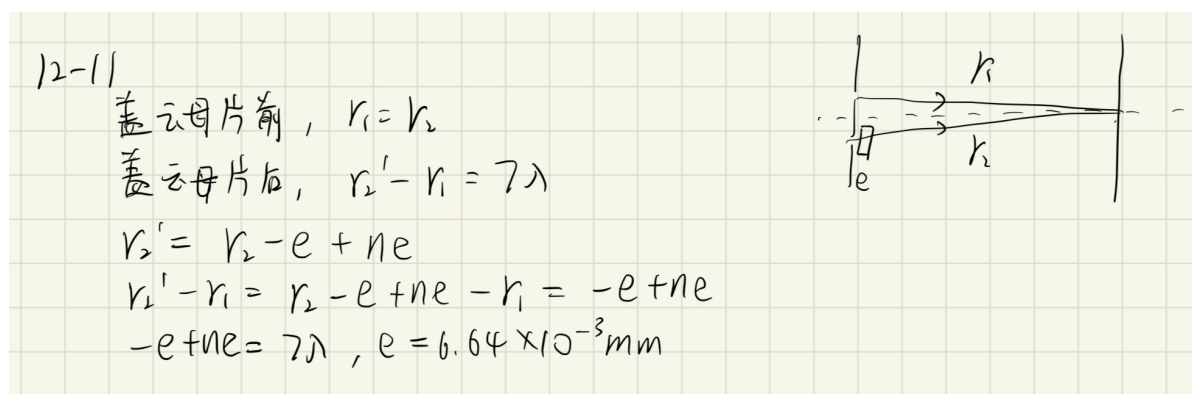 12-11
盖云母片前, r₁ = r₂
盖云母片后, r₂' - r₁ = 7λ
r₂' = r₂ - e + ne
r₂' - r₁ = r₂ - e + ne - r₁ = -e + ne
-e + ne = 7λ, e = 6.64 × 10⁻³ mm
r₁
r₂
e